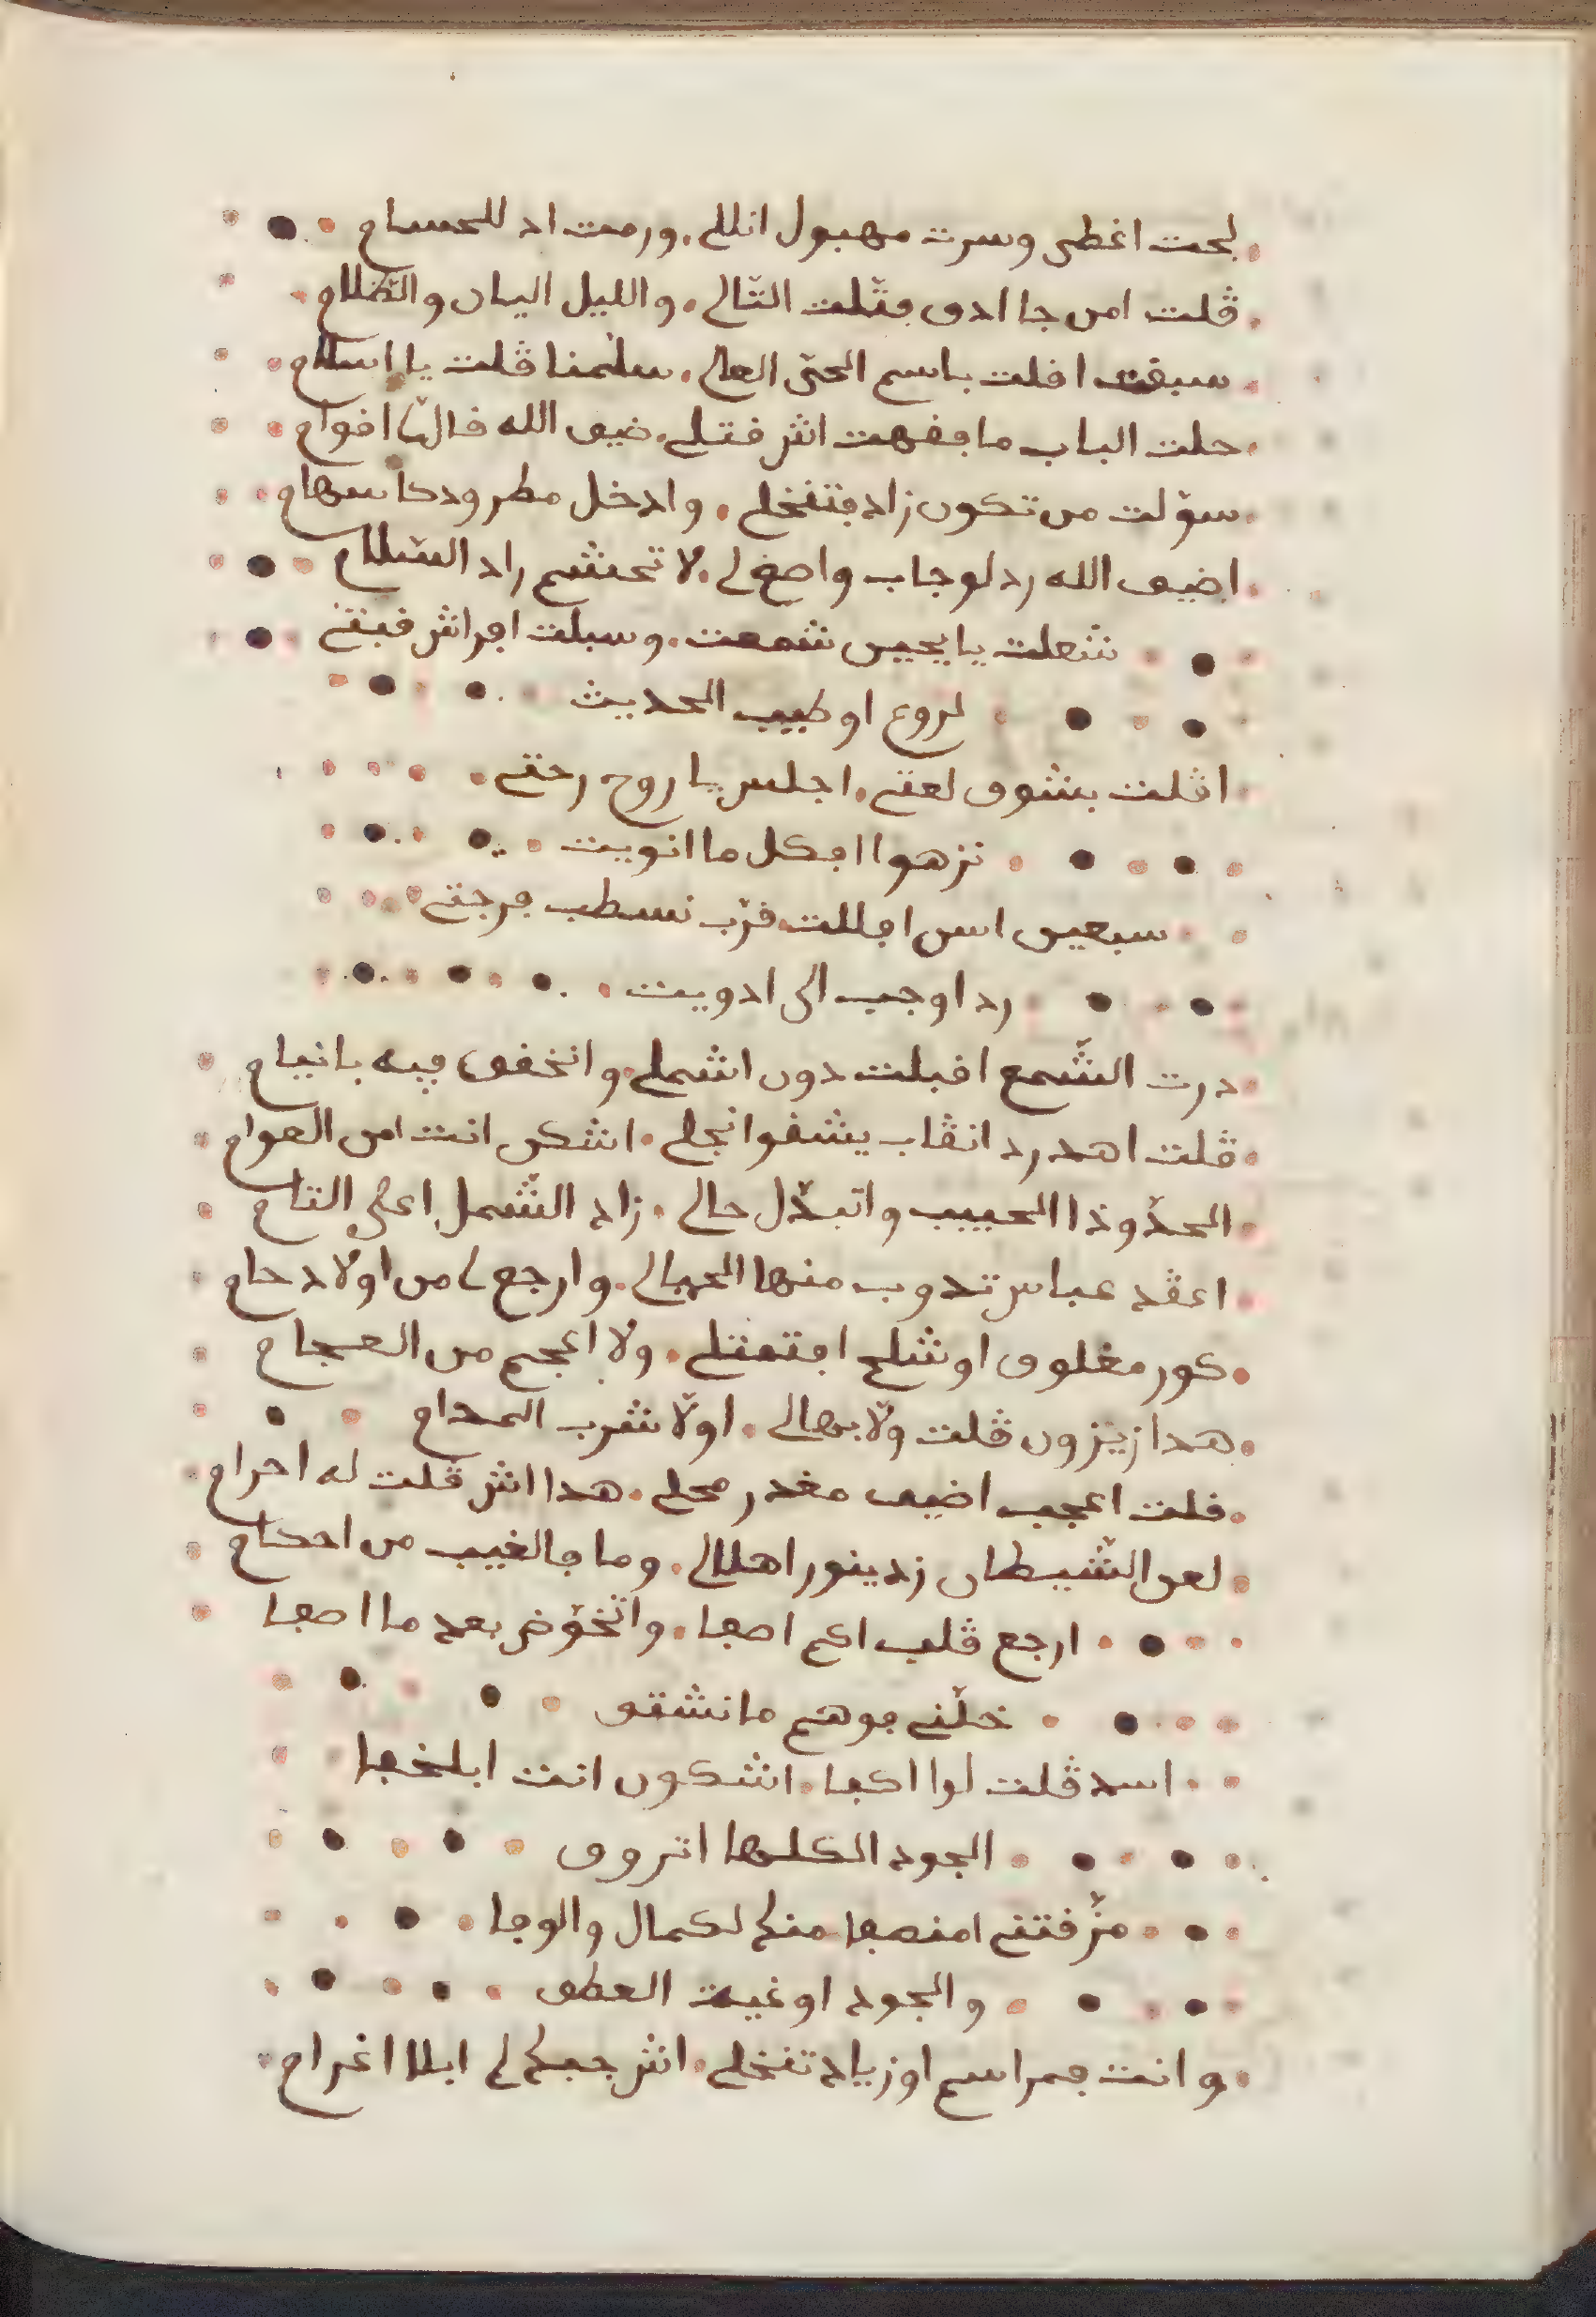 لحت اغطى وسرت مهبول انللي . ورمت اد للحسام
ڨلت امن جا ادى فتلت التالي . والليل اليان والظلام
سبقت افلت باسم الحي العالي . سلمنا ڨلت يا اسلام
حلت الباب ما فقهت اش قتلي . ضيف الله قالها اقوام
سولت من تكون زاد فتنخلي . وادخل مطرود كاسهام
اضيف الله رد لوجاب واصغ لي . لا تحشم راد السلام
شعلت يا يحيى شمعت . وسبلت افراش قبتي
لروع او طبيب الحديث
اڨلت بشوف لعتي . اجلس يا روح رحتي
نزهوا ابكل ما انويت
سبعين اس اجللت قرب نسطب فرجتي
رد اوجب الى ادويت
درت الشمع اقبلت دون اشملي . وانخفف فيه بانيام
ڨلت اهد رد انڨاب يشفوا نجلي . اشكن انت امن العوام
الحد وذا الحبيب واتبدل حالي . زاد الشمل اعلي التام
اعڨد عباس تدوب منها الجبال . وارجع لي من اولاد حام
كور مغلوف او شلح افتمتلي . ولا اعجم من العجام
هدا زيزون ڨلت ولا بهالي . اولا شرب المدام
قلت اعجب اضيف مغدر محلي . هدا اش ڨلت له احرام
لعن الشيطان زدينور اهلالي . وما فالغيب من احكام
ارجع ڨلب اكم اصفا . واتخوض بعد ما اصفا
خلني فوهم ما نشتف
اسد ڨلت لوا اكفا . اشكون انت ابلخفا
الجود الكلها اتروف
مزقتني امنصفا منك لكمال والوفا
والجود او غيت العطف
وانت فمراسم او زياد تنخلي . اش جبك لي ابلا اغرام